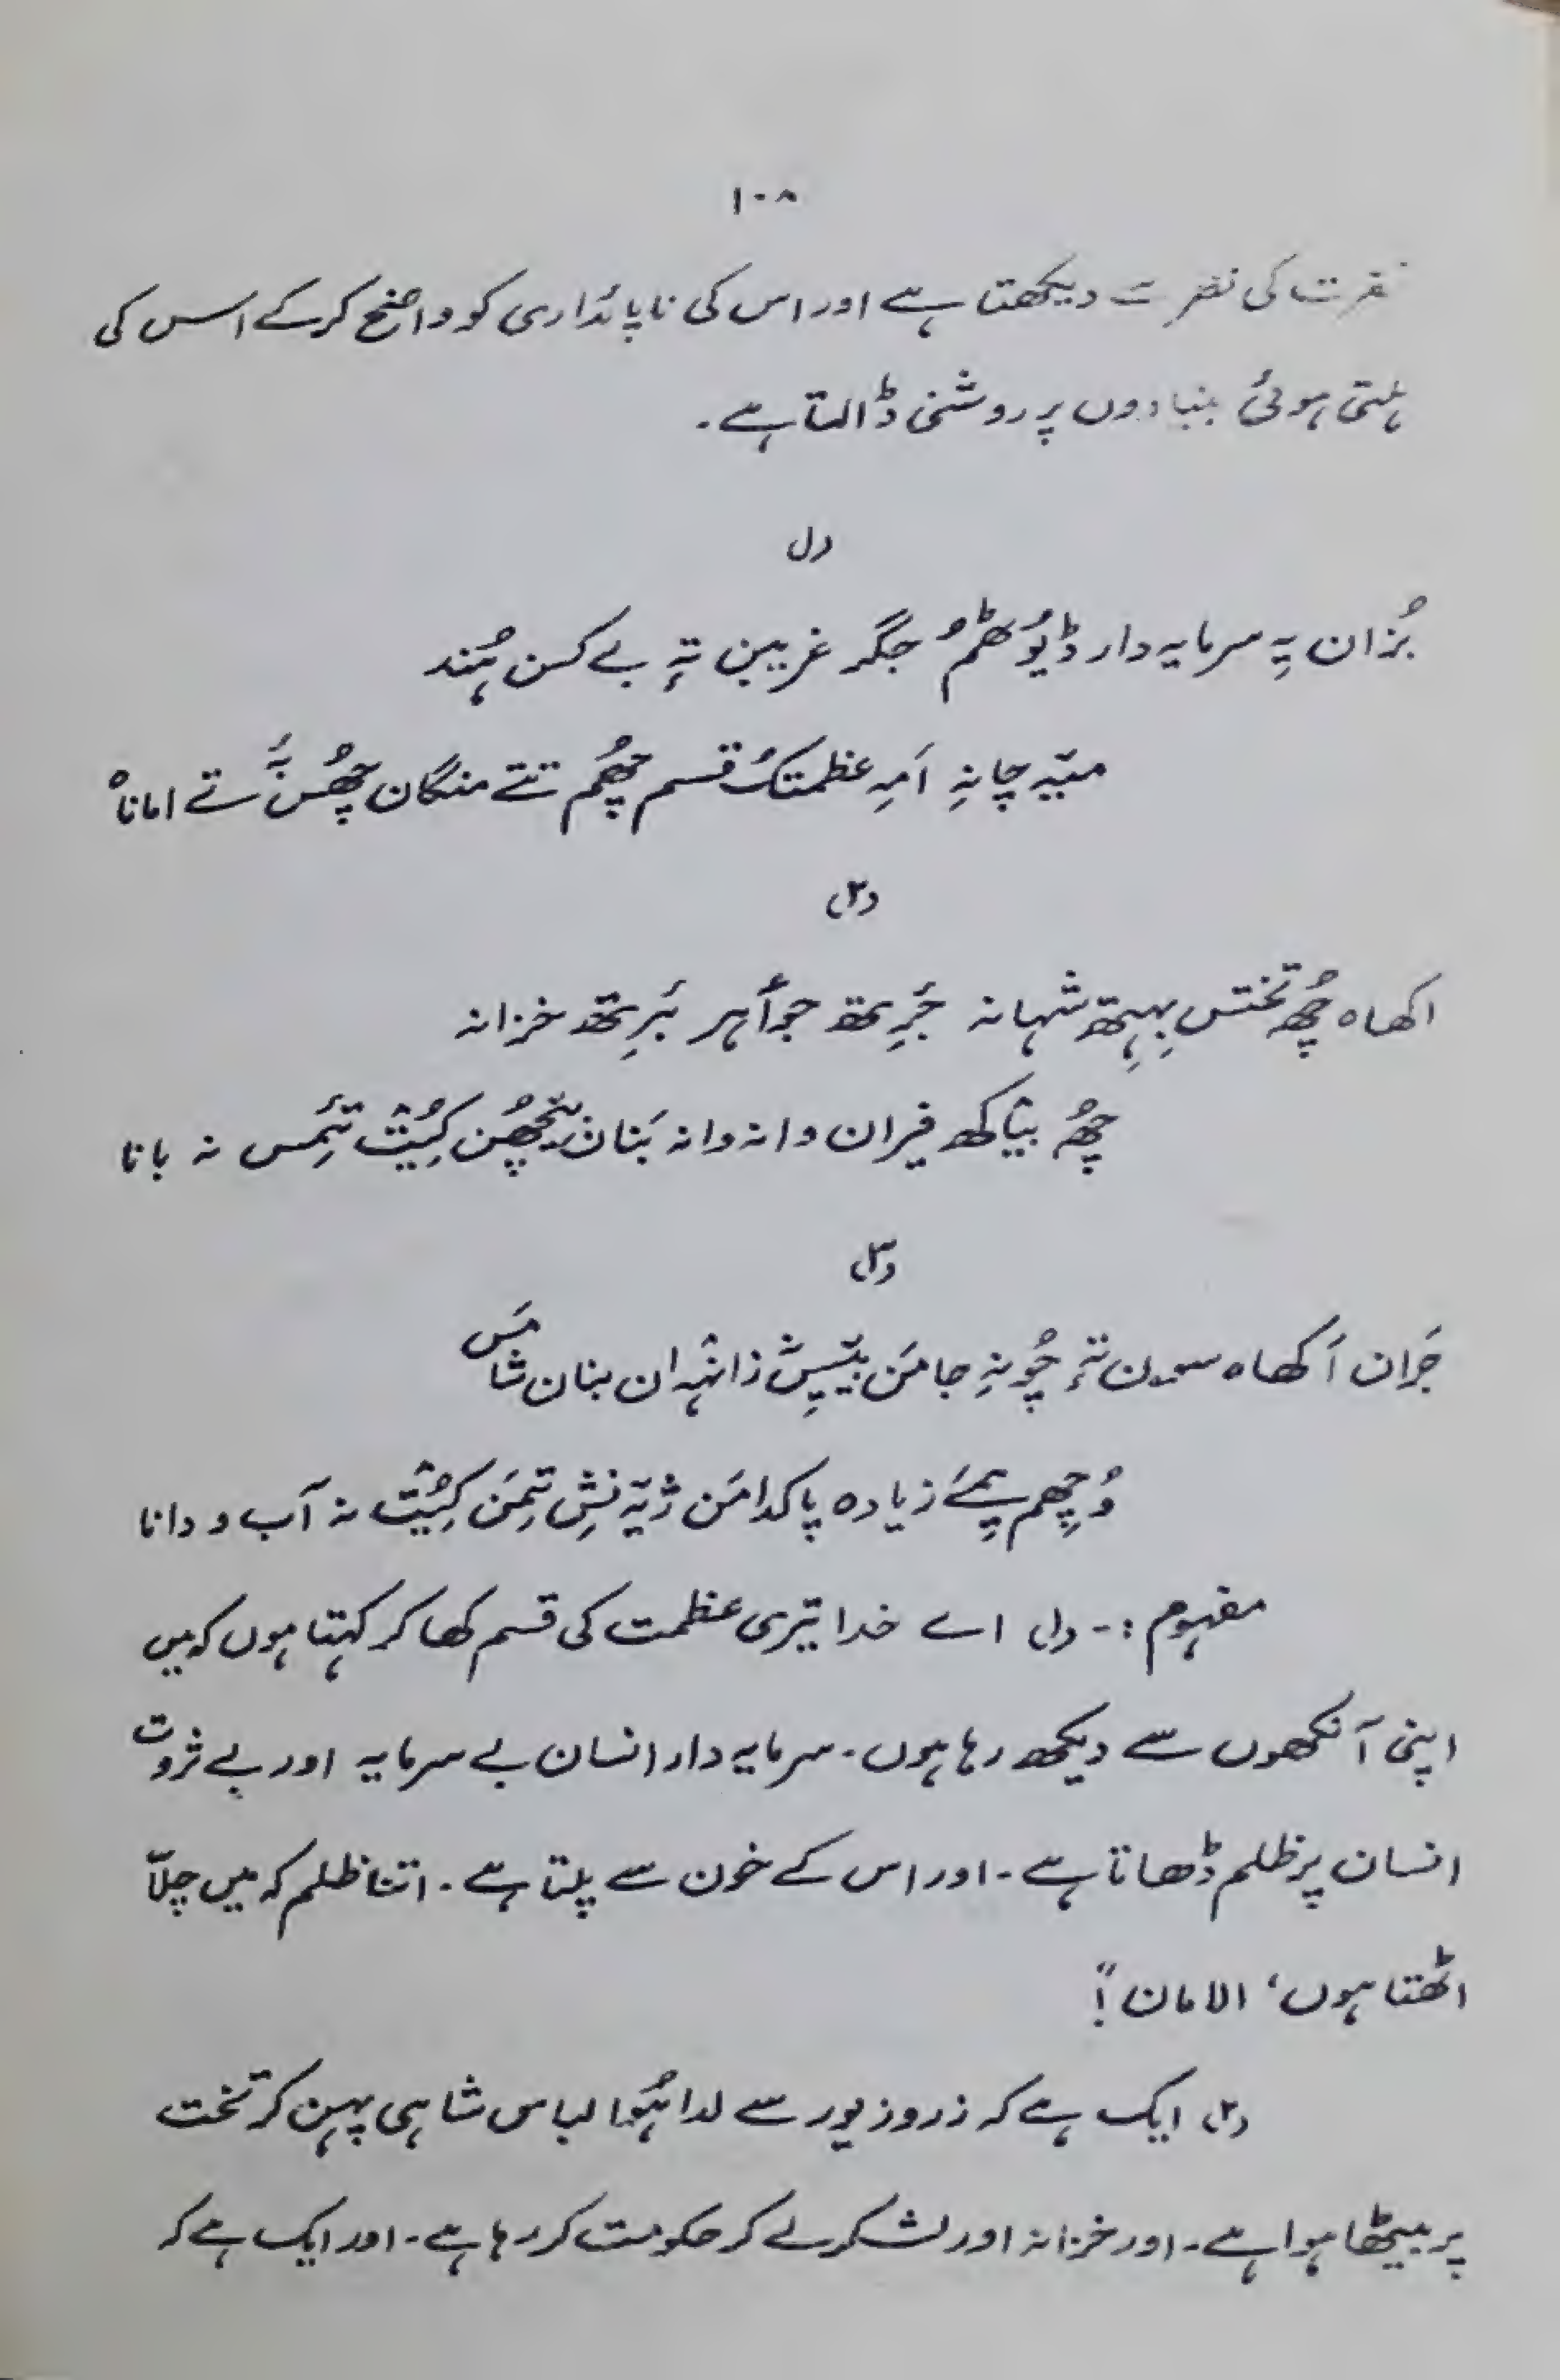 ۱۰۸
نفرت کی نظر سے دیکھتا ہے اور اس کی ناپائداری کو واضح کرکے اس کی
ہلتی ہوئی بنیادوں پر روشنی ڈالتا ہے۔
(۱)
بُزان یہِ سرمایہ دار ڈیُوٗٹھُم جگر غریبن تہٕ بے کسن ہُند
میٚہ چانہِ اَمہِ عظمتُک قسم چھُم تتے منگان چھُس نَہ ستے امانا
(۲)
اکھاہ چھُ تختس بِہِتھ شہانہ جَرِتھ جوأہر بَرِتھ خزانہ
چھُ بیٚاکھ فیران وانہ وانہ بَنان چھُن کیُٛت تَمِس نہ بانا
(۳)
جَران اَکھاہ سون تہٕ چُونہِ جامَن بیٚیِس زانٛہہ ان بنان شامَس
وُچھِم یِمَے زیادہ پاکدامَن ژیٚہ نِش تِمَن کیُٛت نہ آب و دانا
مفہوم :- (۱) اے خدا تیری عظمت کی قسم کھا کر کہتا ہوں کہ میں
اپنی آنکھوں سے دیکھ رہا ہوں۔ سرمایہ دار انسان بے سرمایہ اور بے ثروت
انسان پر ظلم ڈھاتا ہے۔ اور اس کے خون سے پلتا ہے۔ اتنا ظلم کہ میں چلّا
اٹھتا ہوں، الامان"!
(۲) ایک ہے کہ زر و زیور سے لدا ہُوا لباس شاہی پہن کر تخت
پر بیٹھا ہوا ہے۔ اور خزانہ اور لشکر لے کر حکومت کر رہا ہے۔ اور ایک ہے کہ